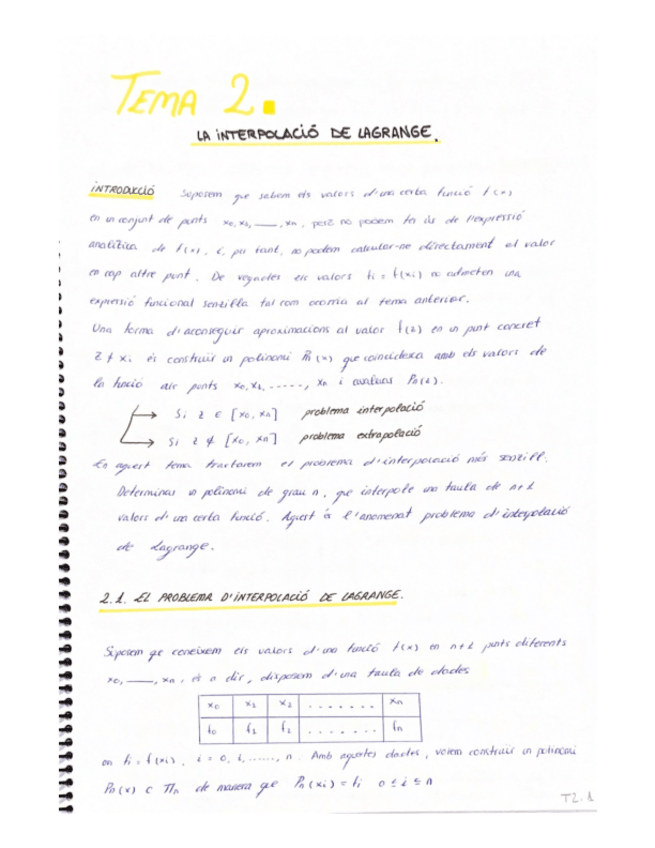 TEMA 2.
LA INTERPOLACIÓ DE LAGRANGE.
INTRODUCCIÓ Suposem que sabem els valors d'una certa funció f(x)
en un conjunt de punts x₀, x₁, ___, xₙ, però no podem fer ús de l'expressió
analítica de f(x), i, per tant, no podem calcular-ne directament el valor
en cap altre punt. De vegades els valors fi = f(xi) no admeten una
expressió funcional senzilla tal com ocorria al tema anterior.
Una forma d'aconseguir aproximacions al valor f(z) en un punt concret
z ≠ xi és construir un polinomi Pₙ(x) que coincideixa amb els valors de
la funció als punts x₀, x₁, ....., xₙ i avaluar Pₙ(z).
→ Si z ∈ [x₀, xₙ] problema interpolació
→ Si z ∉ [x₀, xₙ] problema extrapolació
En aquest tema tractarem el problema d'interpolació més senzill.
Determinar un polinomi de grau n, que interpole una taula de n+1
valors d'una certa funció. Aquest és l'anomenat problema d'interpolació
de Lagrange.
2.1. EL PROBLEMA D'INTERPOLACIÓ DE LAGRANGE.
Suposem que coneixem els valors d'una funció f(x) en n+1 punts diferents
x₀, ___, xₙ, és a dir, disposem d'una taula de dades
x₀ x₁ x₂ ....... xₙ
f₀ f₁ f₂ ....... fₙ
on fi = f(xi), i = 0, 1, ......, n. Amb aquestes dades, volem construir un polinomi
Pₙ(x) ∈ Πₙ de manera que Pₙ(xi) = fi 0 ≤ i ≤ n
T2.1